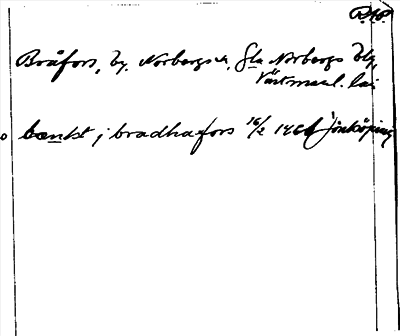 Bråfors, by, Norbergs sn, Gla Norbergs blg,
Västmanl. län
benkt j bradhafors 16/2 1461 Jönköping